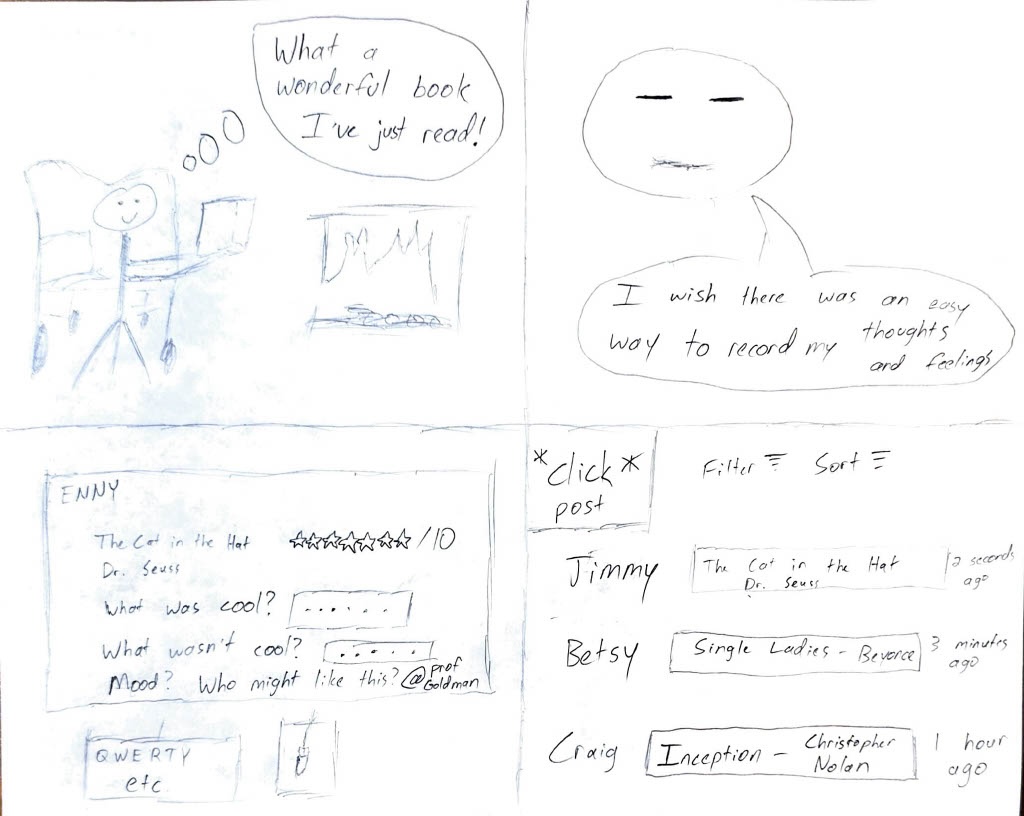 What a
wonderful book
I've just read!
I wish there was an easy
way to record my thoughts
and feelings
ENNY
The Cat in the Hat ☆☆☆☆☆☆☆/10
Dr. Seuss
What was cool? ......
What wasn't cool? .....
Mood? Who might like this? @prof
Goldman
QWERTY
etc.
*click*
post
Filter Sort
Jimmy The Cat in the Hat 2 seconds
Dr. Seuss ago
Betsy Single Ladies - Beyonce 3 minutes
ago
Craig Inception - Christopher 1 hour
Nolan ago